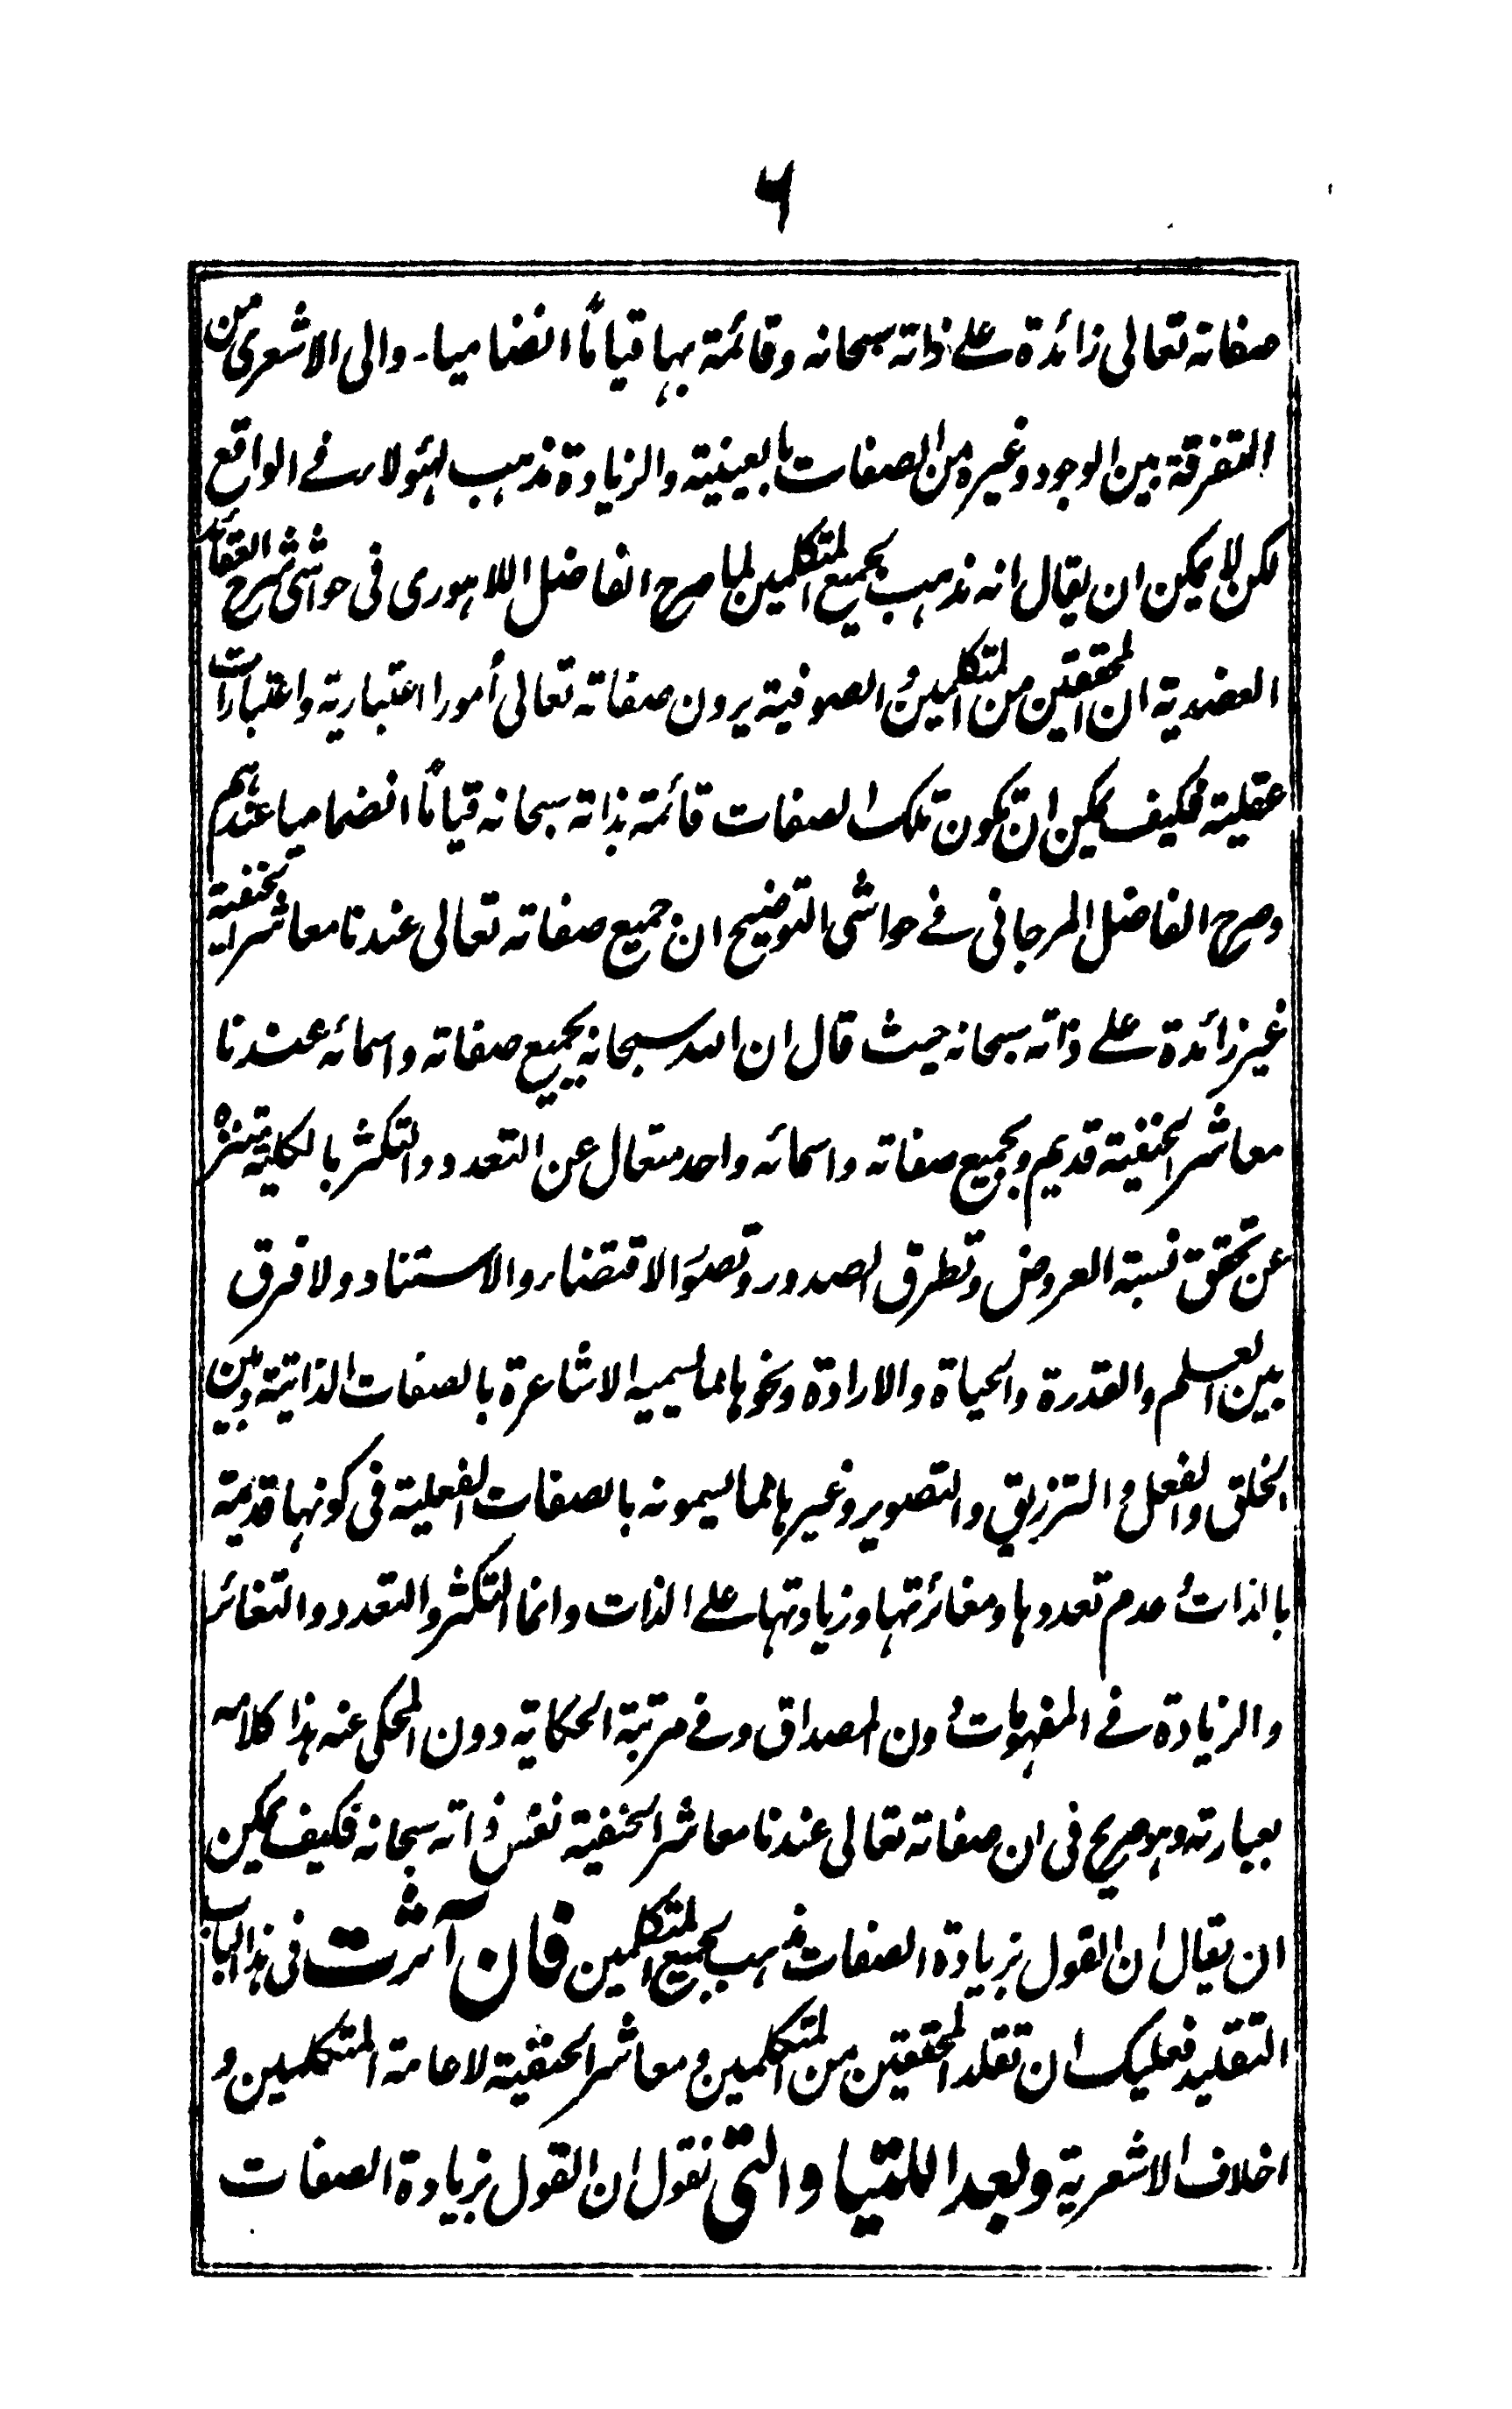 ۶
صفاته تعالى زائدة على ذاته سبحانه وقائمة بها قيامًا انضماميا۔ والى الاشعرى من
التفرقة بين الوجود وغيره من الصفات بالعينية والزيادة مذهب لهؤلاء فى الواقع
لكن لا يمكن ان يقال انه مذهب لجميع المتكلمين لما صرح الفاضل اللاهورى فى حواشى شرح العقائد
العضدية ان المحققين من المتكلمين والصوفية يرون صفاته تعالى أمورا اعتبارية واعتبارات
عقلية فكيف يمكن ان تكون تلك الصفات قائمة بذاته سبحانه قيامًا انضماميا عندهم
وصرح الفاضل المرجانى فى حواشى التوضيح ان جميع صفاته تعالى عندنا معاشر الحنفية
غير زائدة على ذاته سبحانه حيث قال ان الله سبحانه بجميع صفاته واسمائه عندنا
معاشر الحنفية قديم وبجميع صفاته واسمائه واحد متعال عن التعدد والتكثر بالكلية متنزه
عن تحقق نسبة العروض وتطرق الصدور وتصور الاقتضاء والاستناد ولا فرق
بين العلم والقدرة والحياة والارادة ونحوها مما يسميه الاشاعرة بالصفات الذاتية وبين
الخلق والفعل والترزيق والتصوير وغيرها مما يسمونه بالصفات الفعلية فى كونها قديمة
بالذات وعدم تعددها ومغائرتها وزيادتها على الذات وانما التكثر والتعدد والتغائر
والزيادة فى المفهومات دون المصداق وفى مرتبة الحكاية دون المحكى عنه هذا كلامه
بعبارته وهو صريح فى ان صفاته تعالى عندنا معاشر الحنفية نفس ذاته سبحانه فكيف يمكن
ان يقال ان القول بزيادة الصفات مذهب لجميع المتكلمين فان آثرت فى هذا الباب
التقليد فعليك ان تقلد المحققين من المتكلمين ومعاشر الحنفية لا عامة المتكلمين و
اخلاف الاشعرية وبعد اللتيا والتى نقول ان القول بزيادة الصفات